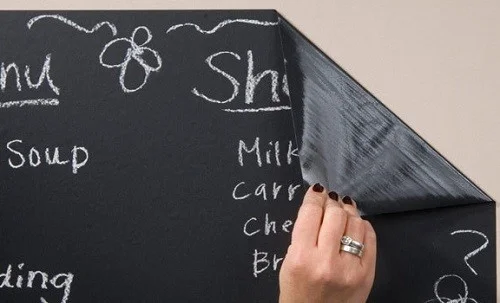 nu
Sh
Soup
Milk
Carr
Che
Br
ding
?